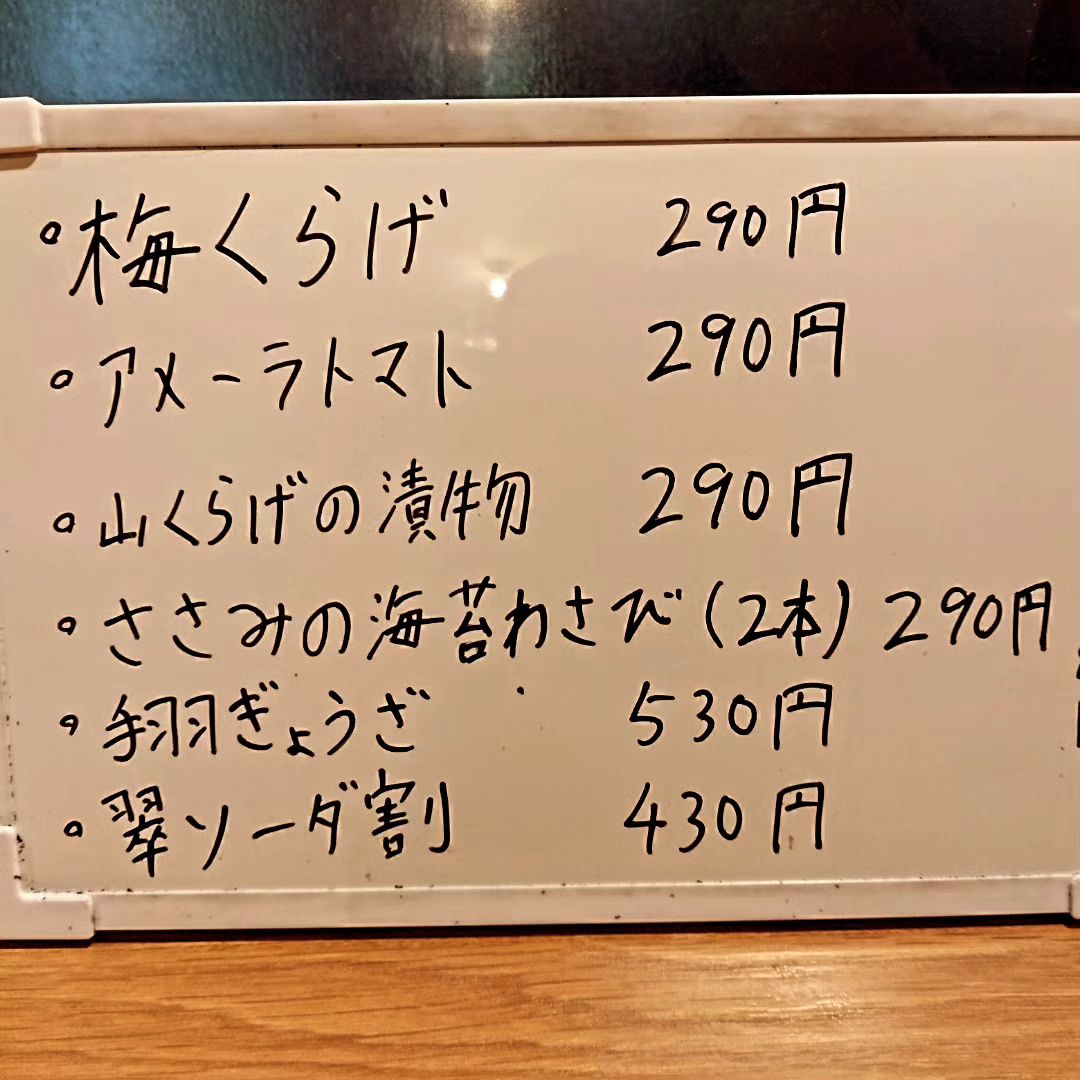 。梅くらげ 290円
。アメーラトマト 290円
。山くらげの漬物 290円
。ささみの海苔わさび(2本) 290円
。手羽ぎょうざ 530円
。翠ソーダ割 430円